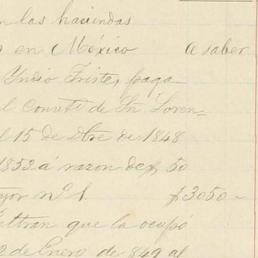 en las haciendas
en México a saber
Indio Triste, paga
el Convto de Sn Loren-
el 15 de Dbre de 1848
1853 á razon de $ 50
yor nº 1. $3050—
Beltran que la ocupó
2 de Enero de 849 al